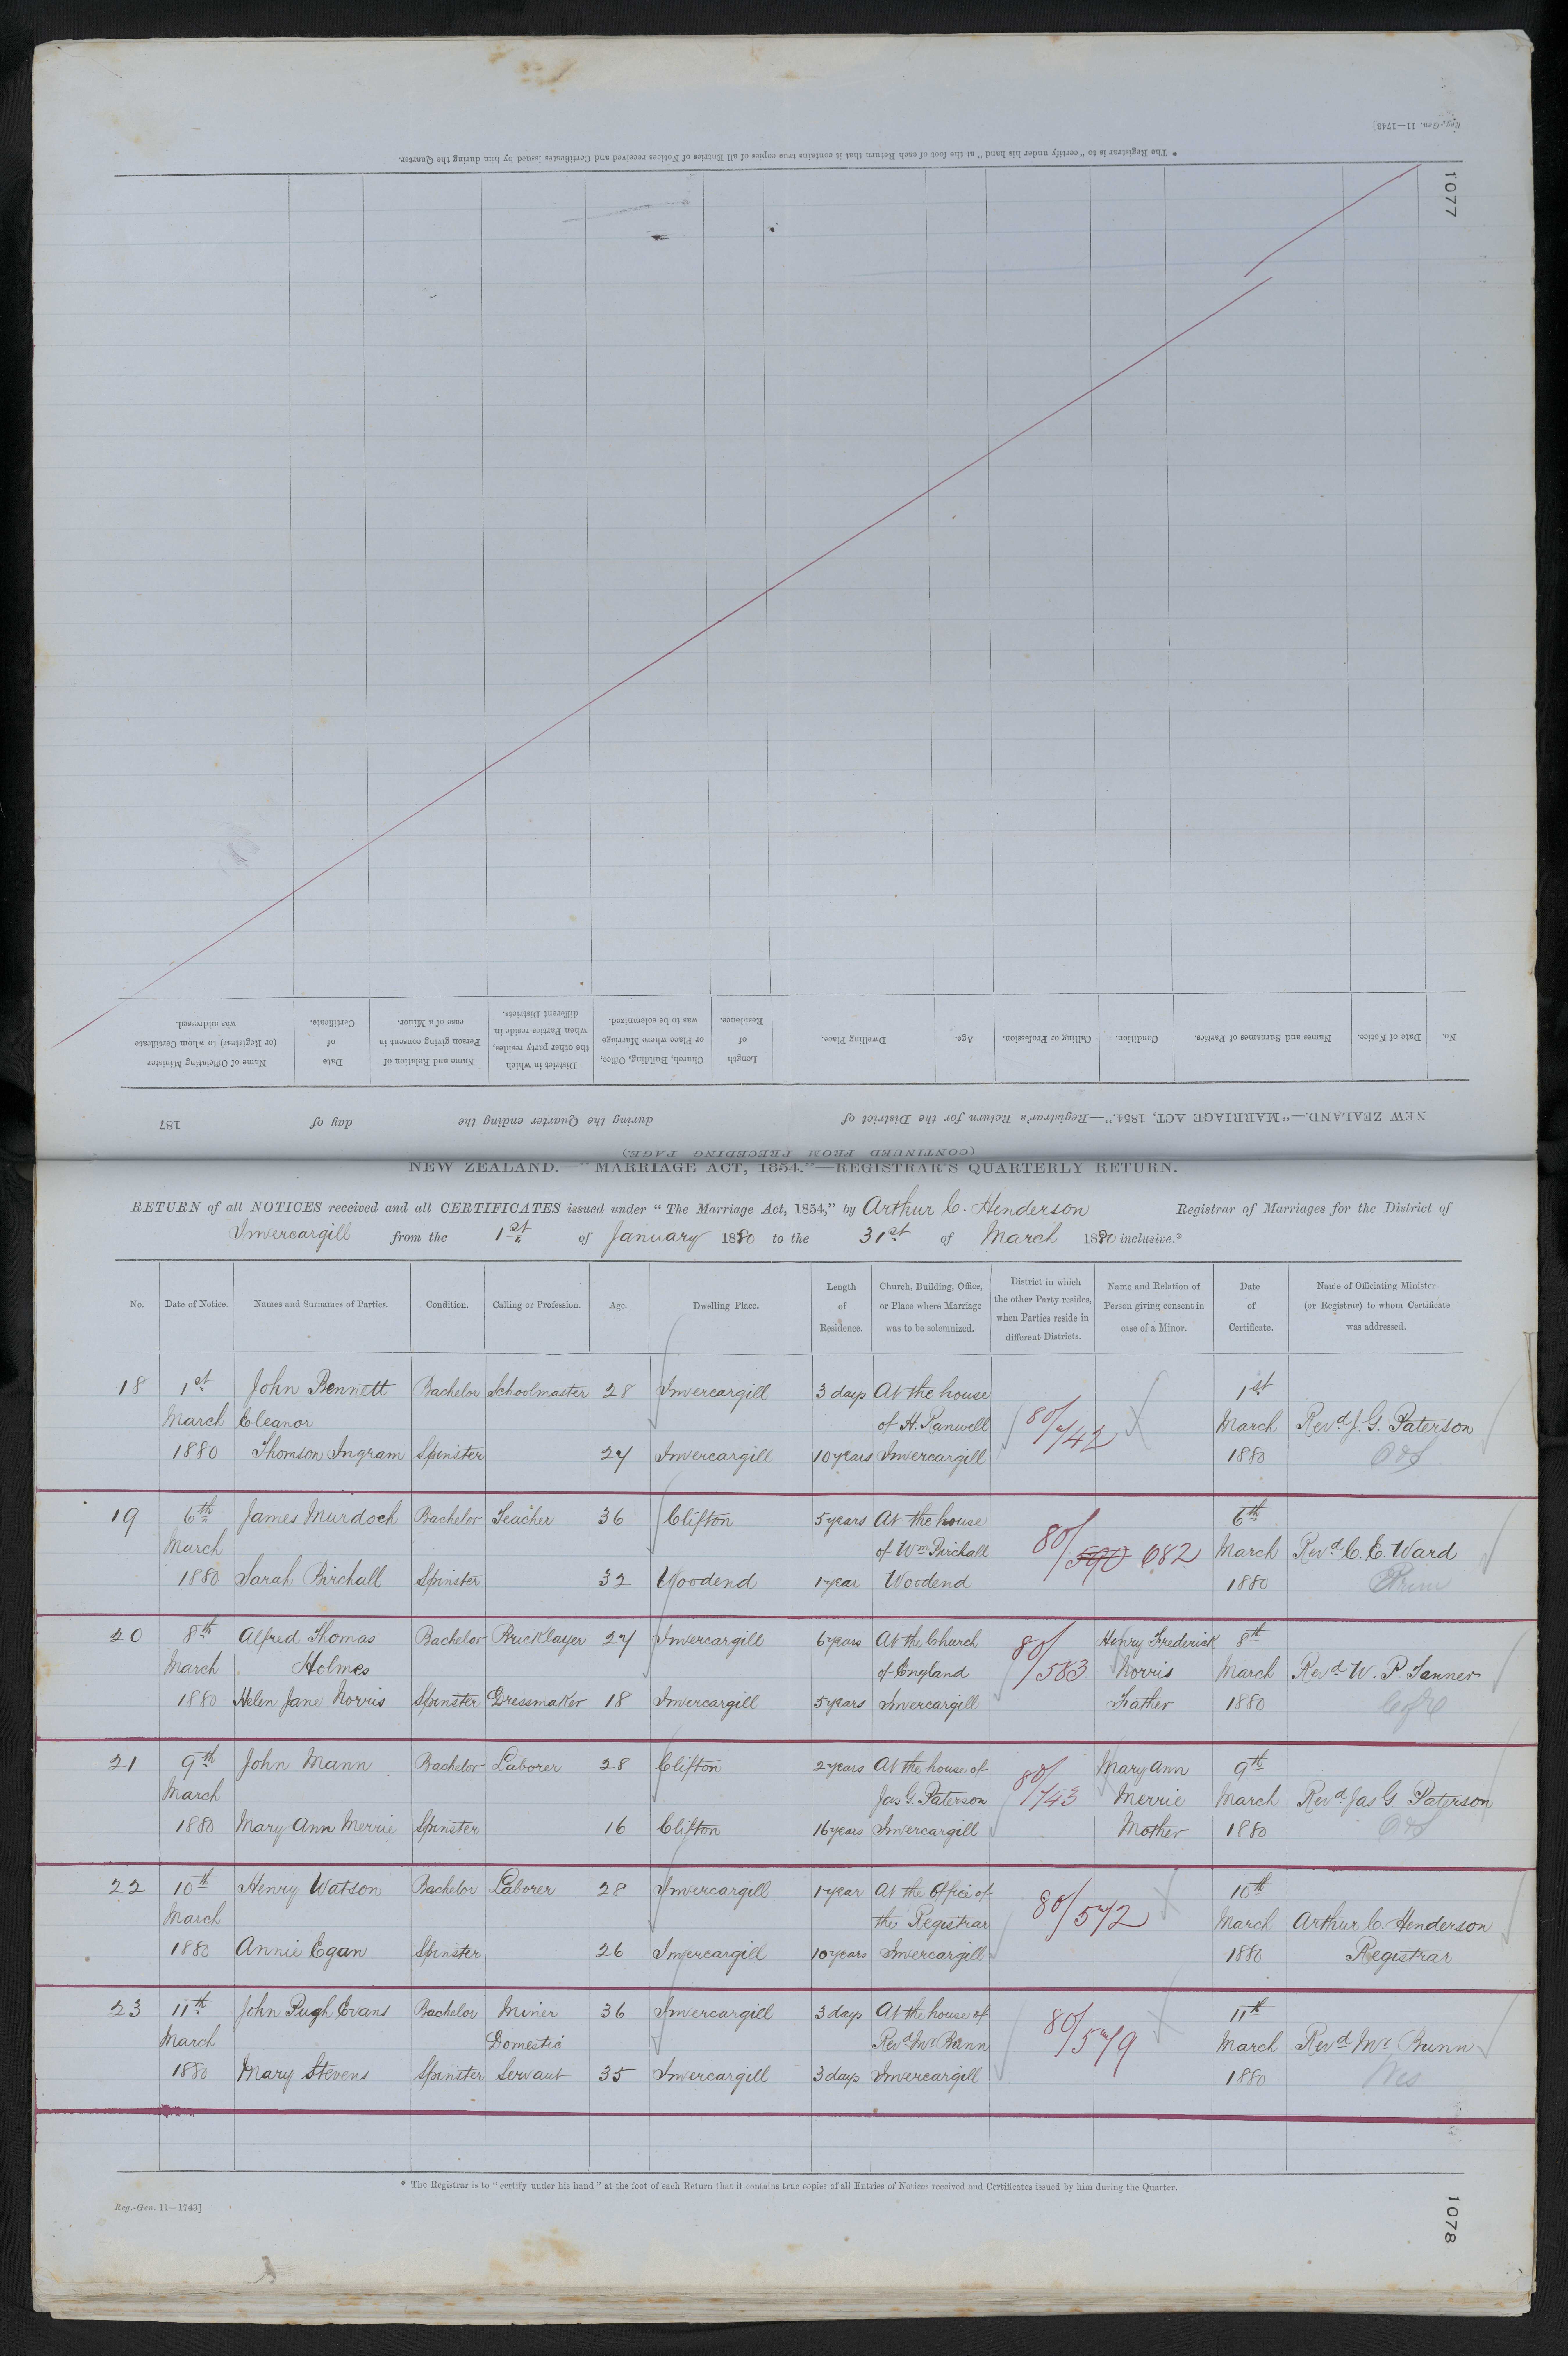 Reg.-Gen. 11—1743]
* The Registrar is to "certify under his hand" at the foot of each Return that it contains true copies of all Entries of Notices received and Certificates issued by him during the Quarter.
1077
No. Date of Notice. Names and Surnames of Parties. Condition. Calling or Profession. Age. Dwelling Place. Length of Residence. Church, Building, Office, or Place where Marriage was to be solemnized. District in which the other party resides, when Parties reside in different Districts. Name and Relation of Person giving consent in case of a Minor. Date of Certificate. Name of Officiating Minister (or Registrar) to whom Certificate was addressed.
NEW ZEALAND.—"MARRIAGE ACT, 1854."—Registrar's Return for the District of during the Quarter ending the day of 187
(CONTINUED FROM PRECEDING PAGE)
NEW ZEALAND.—"MARRIAGE ACT, 1854."—REGISTRAR'S QUARTERLY RETURN.
RETURN of all NOTICES received and all CERTIFICATES issued under "The Marriage Act, 1854," by Arthur C. Henderson Registrar of Marriages for the District of
Invercargill from the 1st of January 1880 to the 31st of March 1880 inclusive.*
No. Date of Notice. Names and Surnames of Parties. Condition. Calling or Profession. Age. Dwelling Place. Length of Residence. Church, Building, Office, or Place where Marriage was to be solemnized. District in which the other Party resides, when Parties reside in different Districts. Name and Relation of Person giving consent in case of a Minor. Date of Certificate. Name of Officiating Minister (or Registrar) to whom Certificate was addressed.
18 1st John Bennett Bachelor Schoolmaster 28 Invercargill 3 days At the house 1st
March Eleanor of H. Panwell 80/742 March Revd J. G. Paterson
1880 Thomson Ingram Spinster 27 Invercargill 10 years Invercargill 1880 OoS
19 6th James Murdoch Bachelor Teacher 36 Clifton 5 years At the house 6th
March of Wm Birchall 80/590 682 March Revd C. E. Ward
1880 Sarah Birchall Spinster 32 Woodend 1 year Woodend 1880
20 8th Alfred Thomas Bachelor Bricklayer 27 Invercargill 6 years At the Church Henry Frederick 8th
March Holmes of England 80/583 Norris March Revd W. P. Tanner
1880 Helen Jane Norris Spinster Dressmaker 18 Invercargill 5 years Invercargill Father 1880 C of E
21 9th John Mann Bachelor Laborer 28 Clifton 2 years At the house of Mary Ann 9th
March Jas G. Paterson 80/743 Merrie March Revd Jas G Paterson
1880 Mary Ann Merrie Spinster 16 Clifton 16 years Invercargill Mother 1880 OoS
22 10th Henry Watson Bachelor Laborer 28 Invercargill 1 year At the Office of 10th
March the Registrar 80/572 March Arthur C. Henderson
1880 Annie Egan Spinster 26 Invercargill 10 years Invercargill 1880 Registrar
23 11th John Pugh Evans Bachelor Miner 36 Invercargill 3 days At the house of 11th
March Domestic Revd Mr Bunn 80/579 March Revd Mr Bunn
1880 Mary Stevens Spinster Servant 35 Invercargill 3 days Invercargill 1880 Wes
* The Registrar is to "certify under his hand" at the foot of each Return that it contains true copies of all Entries of Notices received and Certificates issued by him during the Quarter.
Reg.-Gen. 11—1743]
1078